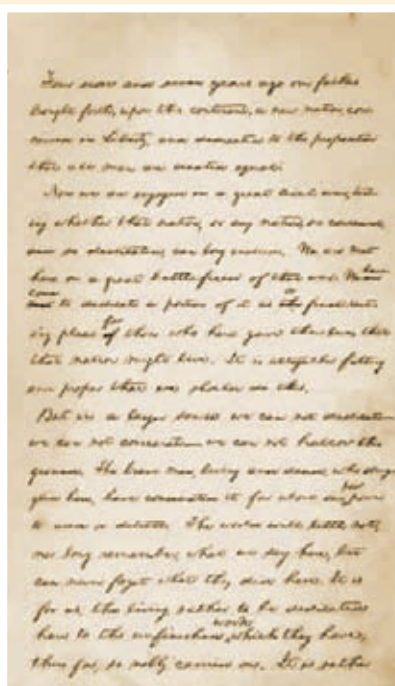 Four score and seven years ago our fathers
brought forth, upon this continent, a new nation, con-
ceived in Liberty, and dedicated to the proposition
that all men are created equal.
Now we are engaged in a great civil war, test-
ing whether that nation, or any nation, so conceived,
and so dedicated, can long endure. We are met
here on a great battlefield of that war. We have
come
to dedicate a portion of it as a final rest-
ing place for those who here gave their lives that
that nation might live. It is altogether fitting
and proper that we should do this.
But in a larger sense we can not dedicate
we can not consecrate we can not hallow this
ground. The brave men, living and dead, who strug-
gled here, have consecrated it far above our poor power
to add or detract. The world will little note,
nor long remember, what we say here, but
can never forget what they did here. It is
for us, the living, rather to be dedicated
here to the unfinished work which they have,
thus far, so nobly carried on. It is rather